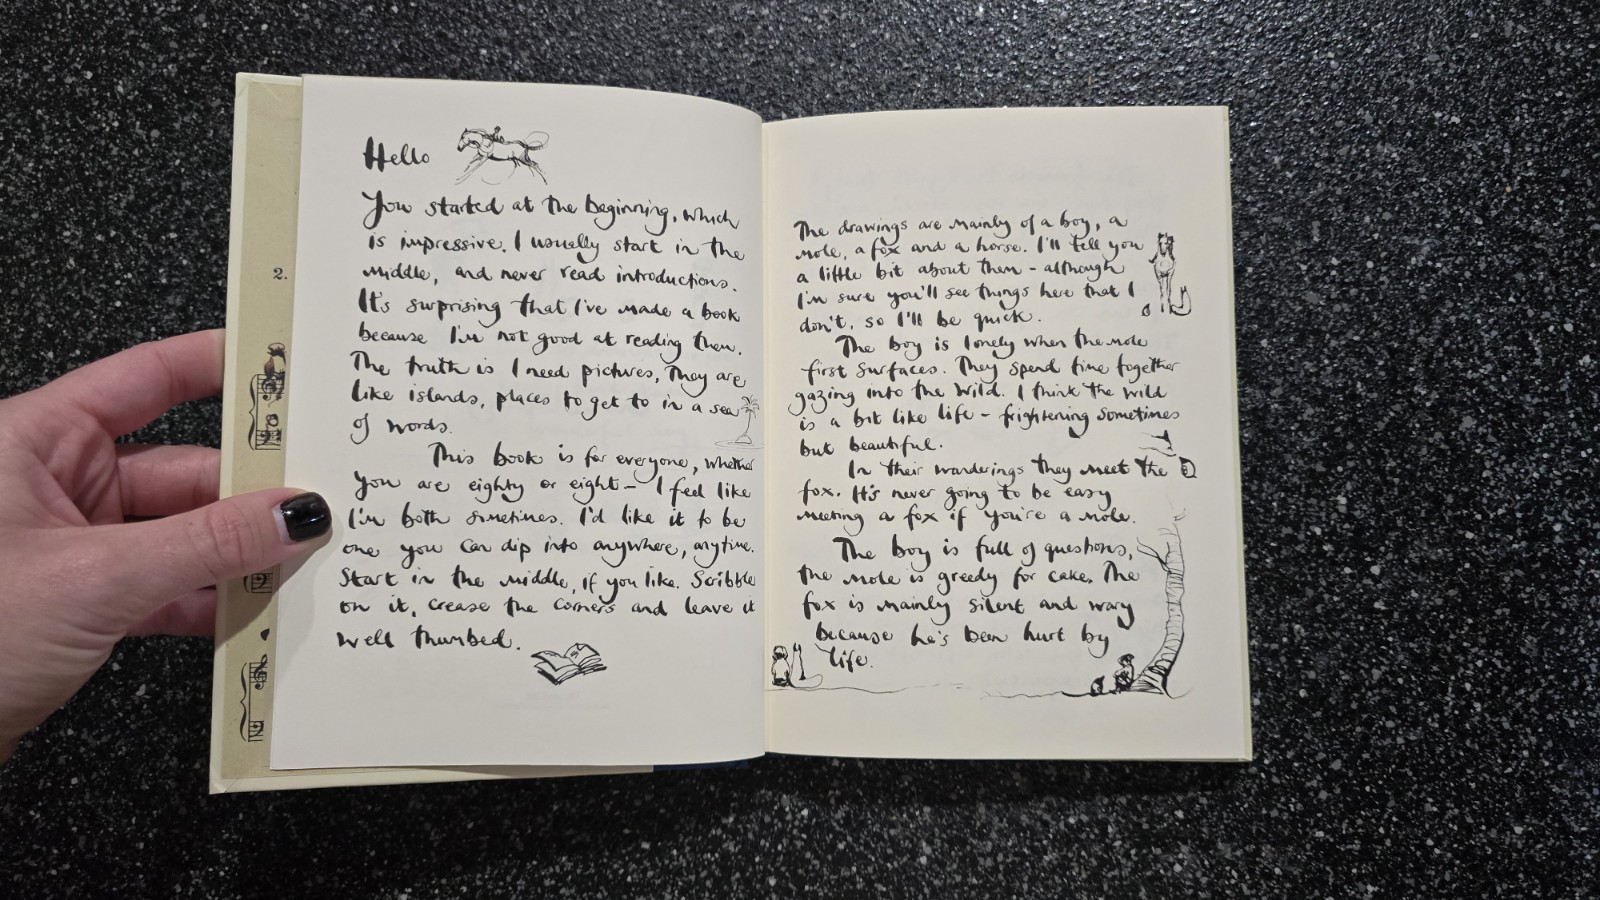 2.
Hello
You started at the beginning, which
is impressive. I usually start in the
middle, and never read introductions.
It's surprising that I've made a book
because I'm not good at reading them.
The truth is I need pictures, They are
like islands, places to get to in a sea
of words.
This book is for everyone, whether
you are eighty or eight – I feel like
I'm both sometimes. I'd like it to be
one you can dip into anywhere, anytime.
Start in the middle, if you like. Scribble
on it, crease the corners and leave it
well thumbed.
The drawings are mainly of a boy, a
mole, a fox and a horse. I'll tell you
a little bit about them – although
I'm sure you'll see things here that I
don't, so I'll be quick.
The boy is lonely when the mole
first surfaces. They spend time together
gazing into the wild. I think the wild
is a bit like life – frightening sometimes
but beautiful.
In their wanderings they meet the
fox. It's never going to be easy
meeting a fox if you're a mole.
The boy is full of questions,
the mole is greedy for cake. The
fox is mainly silent and wary
because he's been hurt by
life.